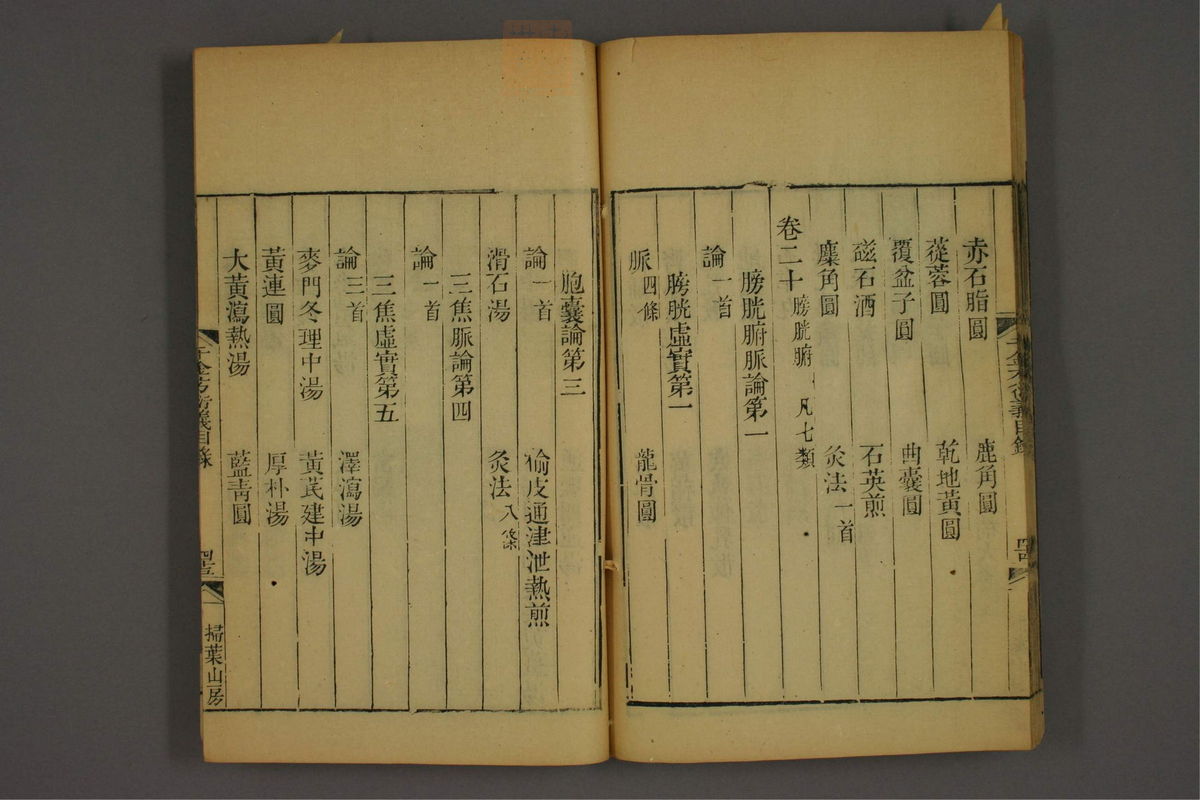 赤石脂圓 鹿角圓
蓯蓉圓 乾地黃圓
覆盆子圓 曲囊圓
磁石酒 石英煎
麋角圓 灸法一首
卷二十膀胱腑 凡七類
膀胱腑脈論第一
論一首
膀胱虛實第一
脈四條 龍骨圓
胞囊論第三
論一首 榆皮通津泄熱煎
滑石湯 灸法八條
三焦脈論第四
論一首
三焦虛實第五
論三首 澤瀉湯
麥門冬理中湯 黃芪建中湯
黃連圓 厚朴湯
大黃瀉熱湯 藍青圓
千金方衍義目錄 四五 掃葉山房